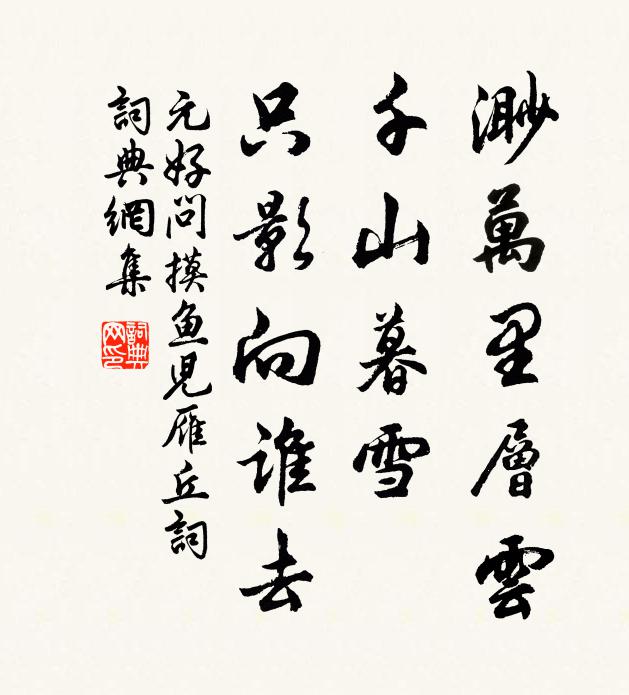 渺萬里層雲
千山暮雪
只影向誰去
元好问摸鱼児雁丘詞
詞典網集
詞典网印